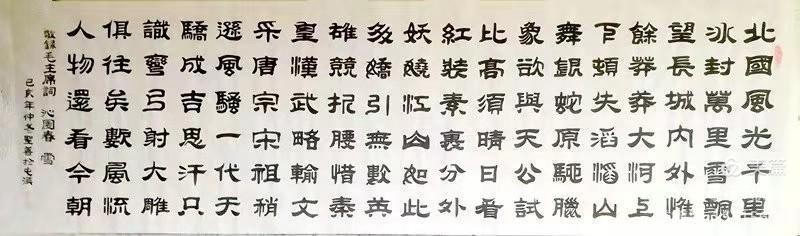 北國風光千里
冰封萬里雪飄
望長城內外惟
餘莽莽大河上
下頓失滔滔山
舞銀蛇原馳臘
象欲與天公試
比高須晴日看
紅裝素裹分外
妖嬈江山如此
多嬌引無數英
雄競折腰惜秦
皇漢武略輸文
采唐宗宋祖稍
遜風騷一代天
驕成吉思汗只
識彎弓射大雕
俱往矣數風流
人物還看今朝
敬録毛主席詞 沁园春 雪
己亥年仲冬
美篇